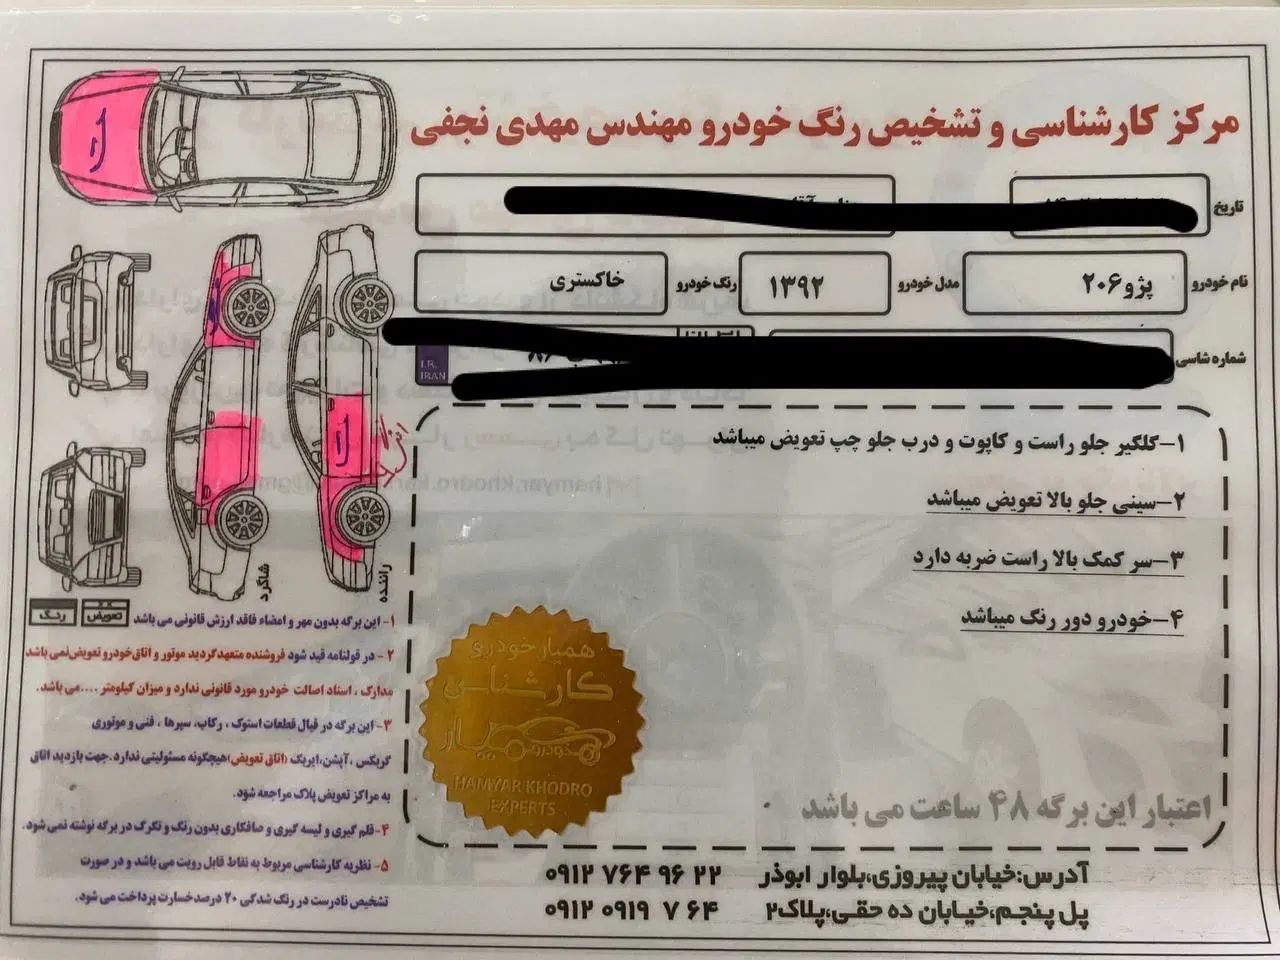 مرکز کارشناسی و تشخیص رنگ خودرو مهندس مهدی نجفی
تاریخ
نام خودرو پژو۲۰۶ مدل خودرو ۱۳۹۲ رنگ خودرو خاکستری
شماره شاسی
I.R.
IRAN
۱-گلگیر جلو راست و کاپوت و درب جلو چپ تعویض میباشد
۲-سینی جلو بالا تعویض میباشد
۳-سر کمک بالا راست ضربه دارد
۴-خودرو دور رنگ میباشد
اعتبار این برگه ۴۸ ساعت می باشد
همیار خودرو
کارشناسی
خودرو
HAMYAR KHODRO
EXPERTS
شاگرد
راننده
تعویض
رنگ
۱- این برگه بدون مهر و امضاء فاقد ارزش قانونی می باشد
۲- در قولنامه قید شود فروشنده متعهدگردید موتور و اتاق‌خودرو تعویض‌نمی باشد
مدارک ، اسناد اصالت خودرو مورد قانونی ندارد و میزان کیلومتر ....می باشد.
۳- این برگه در قبال قطعات استوک ، رکاب، سپرها ، فنی و موتوری
گربکس ،آپشن،ایربک (اتاق تعویض)هیچگونه مسئولیتی ندارد.جهت بازدید اتاق
به مراکز تعویض پلاک مراجعه شود.
۴-قلم گیری و لیسه گیری و صافکاری بدون رنگ و نکرک در برگه نوشته نمی شود.
۵- نظریه کارشناسی مربوط به نقاط قابل رویت می باشد و در صورت
تشخیص نادرست در رنگ شدگی ۲۰ درصدخسارت پرداخت می شود.
آدرس:خیابان پیروزی،بلوار ابوذر ۰۹۱۲ ۷۶۴ ۹۶ ۲۲
پل پنجم،خیابان ده حقی،پلاک۲ ۰۹۱۲ ۰۹۱۹ ۷ ۶۴